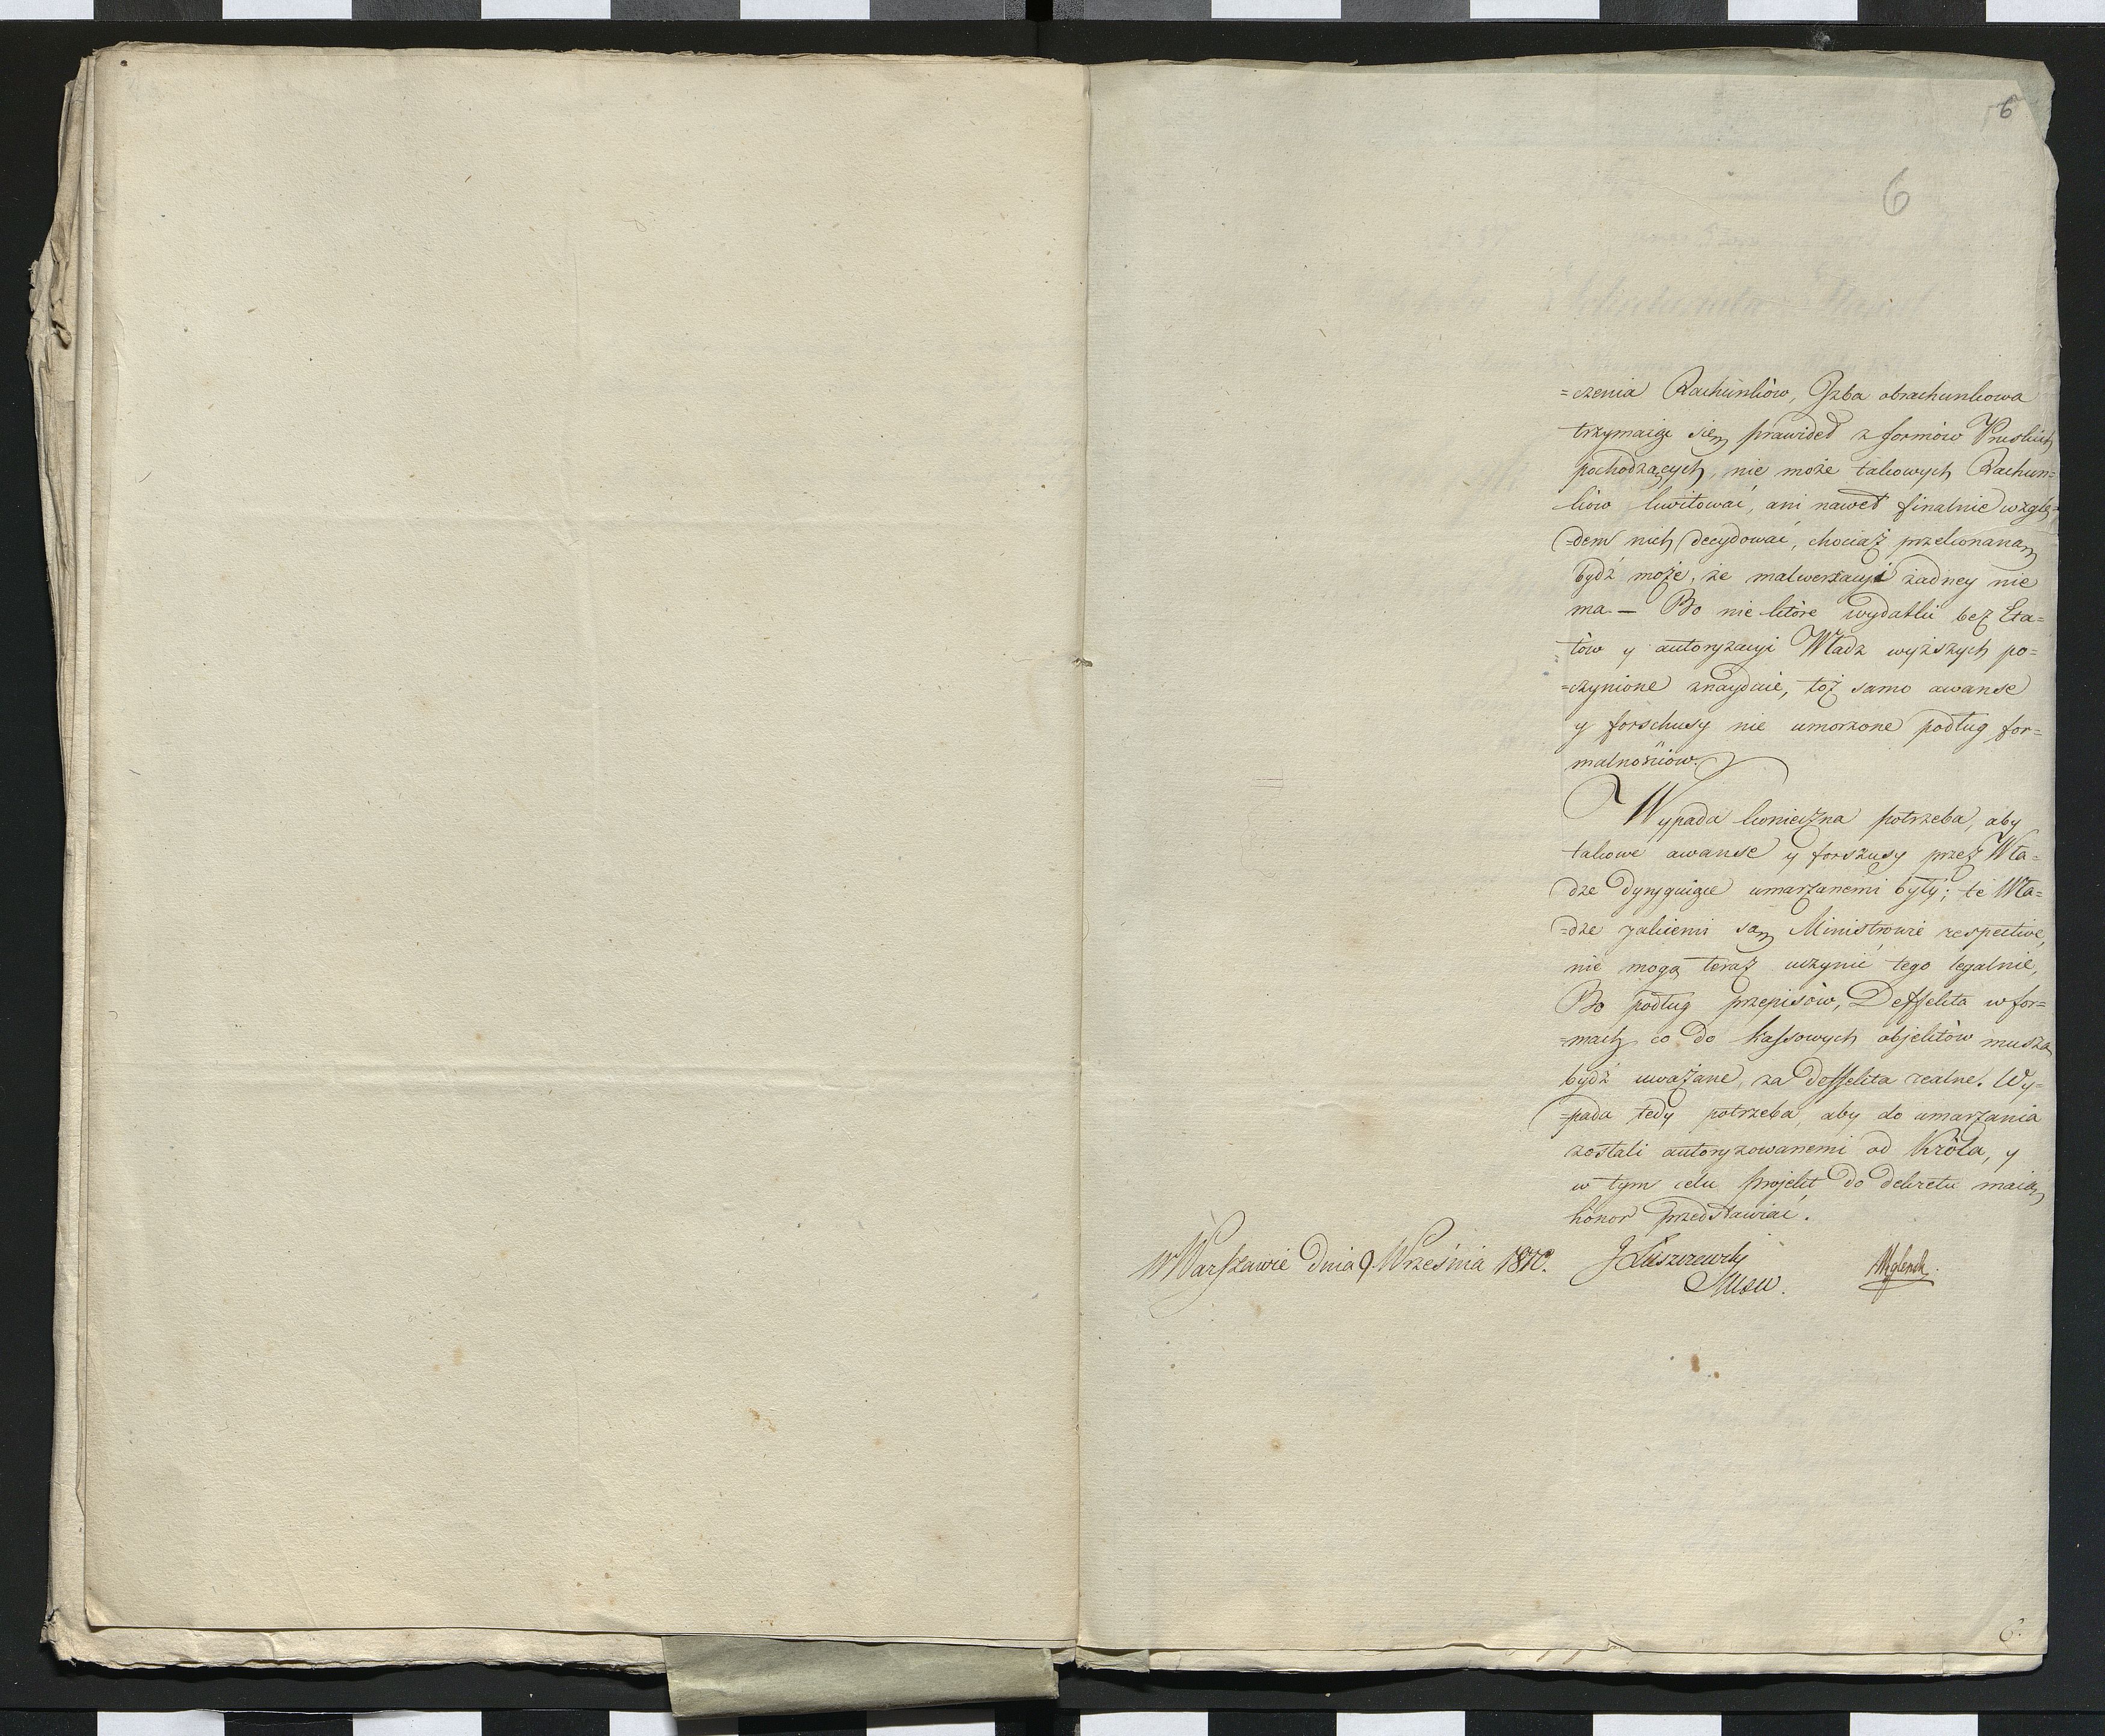 6
6
=czenia Rachunków, Jzba obrachunkowa
trzymaiąc się prawideł z formów Pruskich
pochodzących, nie może takowych Rachun=
ków kwitować, ani nawet finalnie wzglę=
=dem nich decydować, chociaż przekonaną
bydź może, że malwersacyi żadney nie
ma. — Bo nie które wydatki bez Eta=
tów y autoryzacyi Władz wyższych po=
=czynione znayduie, toż samo awanse
y forschusy nie umorzone podług for=
malnościów.
Wypada konieczna potrzeba, aby
takowe awanse y forszusy przez Wła=
dze dyryguiące umarzanemi były; te Wła=
=dze jakiemi są Ministrowie respective,
nie mogą teraz uczynić tego legalnie,
Bo podług przepisów, Deffekta w for=
=mach co do kassowych objektów muszą
bydź uważane, za deffekta realne. Wy=
=pada tedy potrzeba, aby do umarzania
zostali autoryzowanemi od Króla, y
w tym celu projekt do dekretu maią
honor przedstawiać.
W Warszawie dnia 9 Września 1810.
J Łuszczewski
Węglensk.
6.